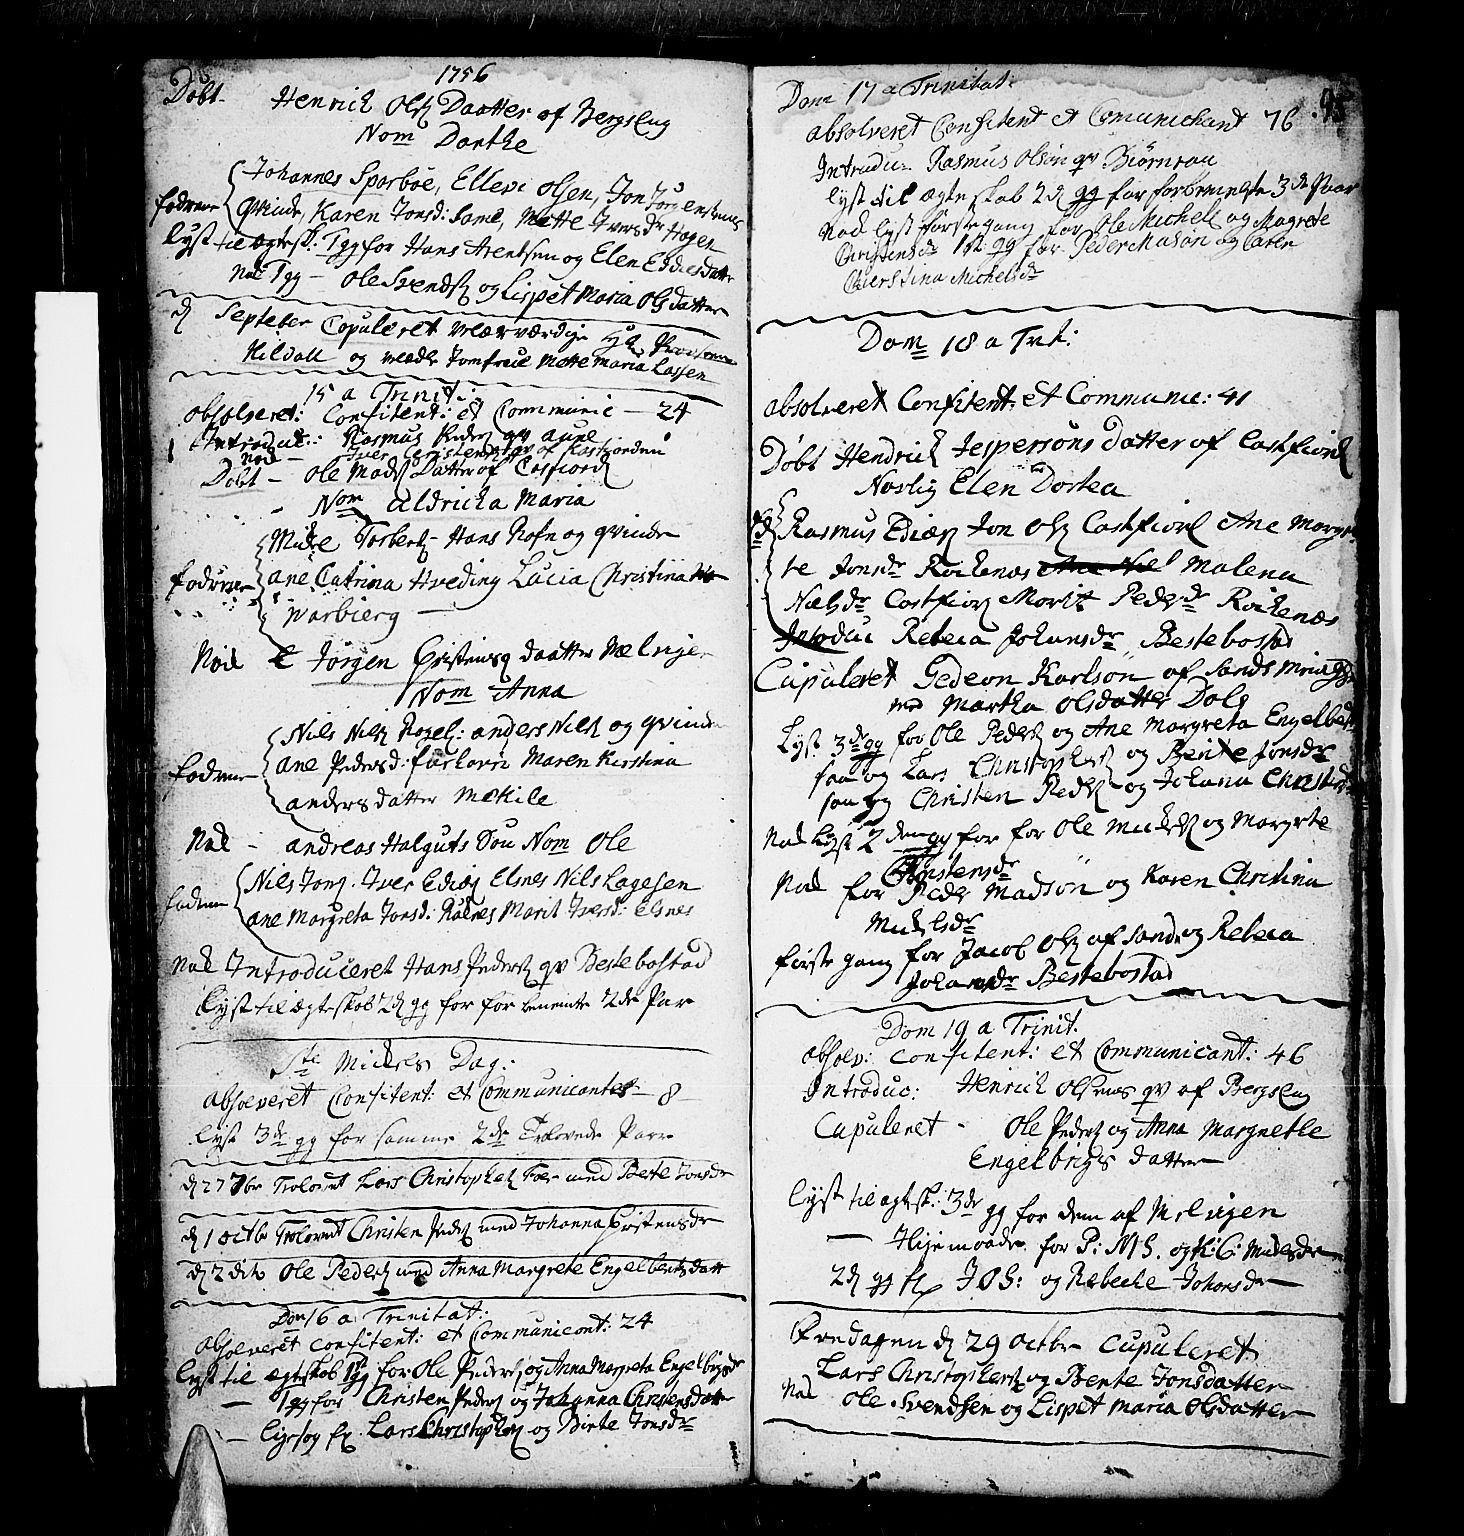 1756
Døbt- Henrich Ols Daatter af Bergseng
Nom Dorthe
fadrene Johannes Sporboe, Ellevi Olsen, Jon Jørgensens
Qvinde, Karen Jonsd: same, Mette Iversdr Hagen
lyst til ægtesk: 1 gg for Hans Arentsen og Elen Eddiesdatter
Nok 1 gg - Ole Svends og Lispet Maria Olsdatter
d Septeber Copuleret velærværdige Hr Provsten
Hildall og Jomfrue Mette Maria Lassen
15 a Trinit:
absolveret: Confitent: et Communic - 24
Introduc: Rasmus Peders qv aune
Nok - Iver af Kastfjorden
Døbt - Ole Mads Datter af Casfiord
Nom Aldricka Maria
Torbers - Hans Rofn og qvinde
fadrene ane Catrina Hveding Lucia Christina
Warbierg -
Nok Jørgen Cristens daatter
Nom Anna
Nils Nils anders Nils og qvinde
fadrene ane Pedersd: Maren Kirstina
andersdatter
Nok - andreas Halguts Søn Nom Ole
fadrene Nils Jons. Iver Edias Elsnes Nils Lagesen
ane Margreta Jonsd: Marit Iversd: Elsnes
Nok Introduceret Hans Peders qv Bestebostad
lyst til ægteskab 2d gg for for beneinte 2de Par
Ste Mickels Dag:
absolveret Confitent: et Communicantes - 8
lyst 3de gg for samme 2de Trolovede Parr
d 27 7br Trolovet Lars Christophers med Berte Jonsdr
d 1 octbr Trolovet Christen Peders med Johanna Cristensdr
d 2 dito Ole Peders med Anna Margrete Engelbertsdatt
Dom 16 a Trinitat:
absolveret confitent: et Communicant: 24
lyst til ægteskab 1te gg for Ole Peders og Anna Margreta Engelbrigsdr
- 1 gg for Christen Peders og Johanna Christensdatter
- ligesog Lars Christophers og Birte Jonsdr
95
Dom 17 a Trinitat:
absolveret Confitent et Comunichant 76
Introduc. Rasmus Olsøn qv Biørnraa
lyst til ægteskab 2d gg for forbemelgte 3de Paar
Nok lyst første gang for Ole Michels og Magrete
Christensdr 1st gg for Peder Madsøn og Caren
Cherstina Michelsdr
Dom 18 a Trit:
absolveret Confitent: et Commune: 41
Døbt Hendrich Jespersøns datter af Castfiord
Navlig Elen Dortea
Rasmus Edias Jon Ols Castfiord Ane Margre
te Jonsdr Rochenæs Malena
Nielsdr Castfiord Marit Pedersdr Rochenæs
Introduc Rebeca Johansdr Bestebostad
Cupuleret Gedeon Karlsøn af Sands
med Martha Olsdatter Dale
Lyst 3de gg for Ole Peders og Ane Margreta Engelbe
saa og Lars Christophers og Bente Jonsdr
saa og Christen Peders og Johana Christ
Nok lyst 2den gg for for Ole Michels og Margrte
Christensdr
Nok for Peder Madsøn og Karen Christina
Michelsdr
første gang for Jacob Ols af Sand og Rebeca
Johansdr Bestebostad
Dom 19 a Trinit.
absolv: confitent: et Communicant: 46
Introduc: Henrich Olsens qv af Bergseng
Cupuleret - Ole Peders og Anna Margrethe
Engelbrigs datter
lyst til ægtsk: 3de gg for dem af
- for P: M S. og K: C: Mickelsdr
2d gg J O S: og Rebecke Johansdr
Fredagen d 29 octbr Cupuleret
Lars Christophers og Bente Jonsdatter
Nok Ole Svendsen og Lispet Maria Olsdatter